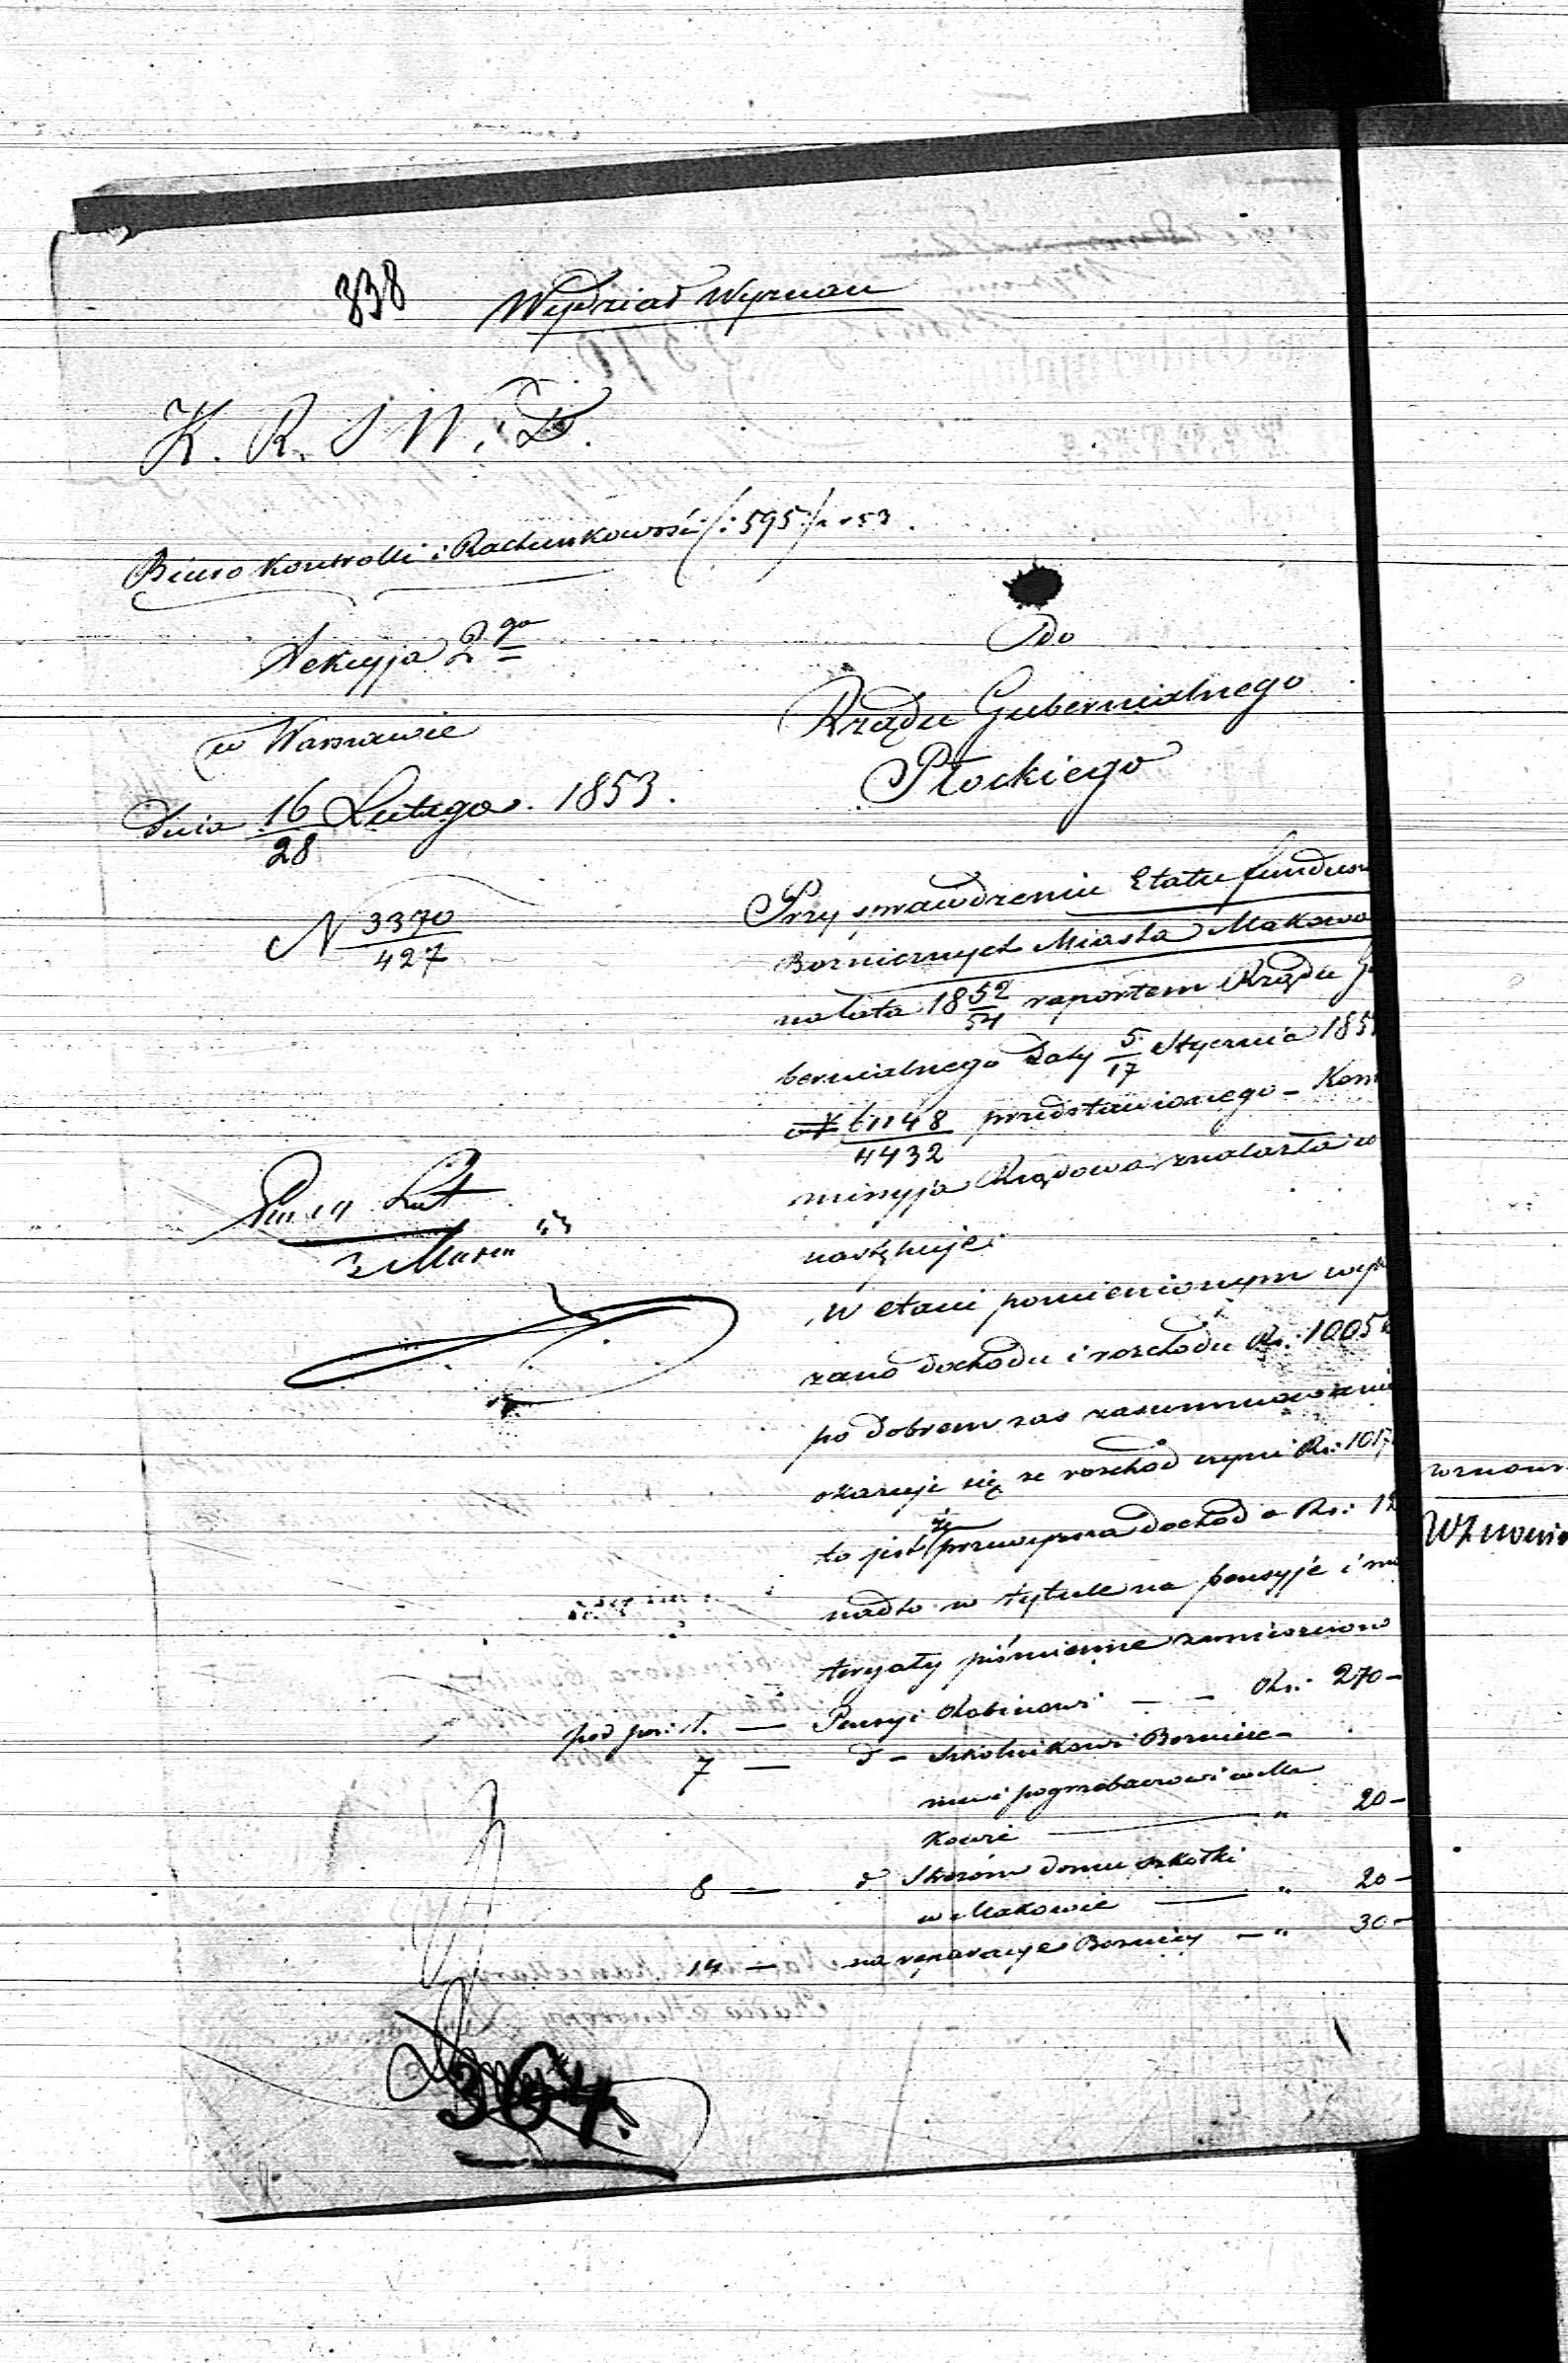 338 Wydział Wyznań
K. R. S W. i D.
Biuro Kontrolli i Rachunkowości /: 595 :/ 53.
Sekcyja 2ga
w Warszawie
dnia 16/28 Lutego 1853.
N 3370/427
Do
Rządu Gubernialnego
Płockiego
Przy sprawdzeniu Etatu fundusz
Bozniczych Miasta Makowa
na lata 1852/54 raportem Rządu Gu
bernialnego daty 5/17 Stycznia 185
61148/4432 przedstawionego - Kom
missyja Rządowa znalazła co
następuje:
W etacie pomienionym wyka
zano dochodu i rozchodu Rs: 1005
po dobrem zas zasummowaniu
okazuje się ze rozchod czyni Rs: 1017
to jest że przewyzsza dochod o Rs: 12
nadto w tytule na pensyje i ma
teryały piśmienne zamieszczono
pod poz: 1. — Pensyi Rabinowi — — Rs: 270 -
7 — d - Szkolnikowi Boznicz-
nemu i pogrzebaczowi w Ma
kowie — " 20 -
8 — d Stróżowi domu szkółki
w Makowie — " 20 -
14 — na reparacye Boznicy — " 30 -
Lut
Marca 53
364.